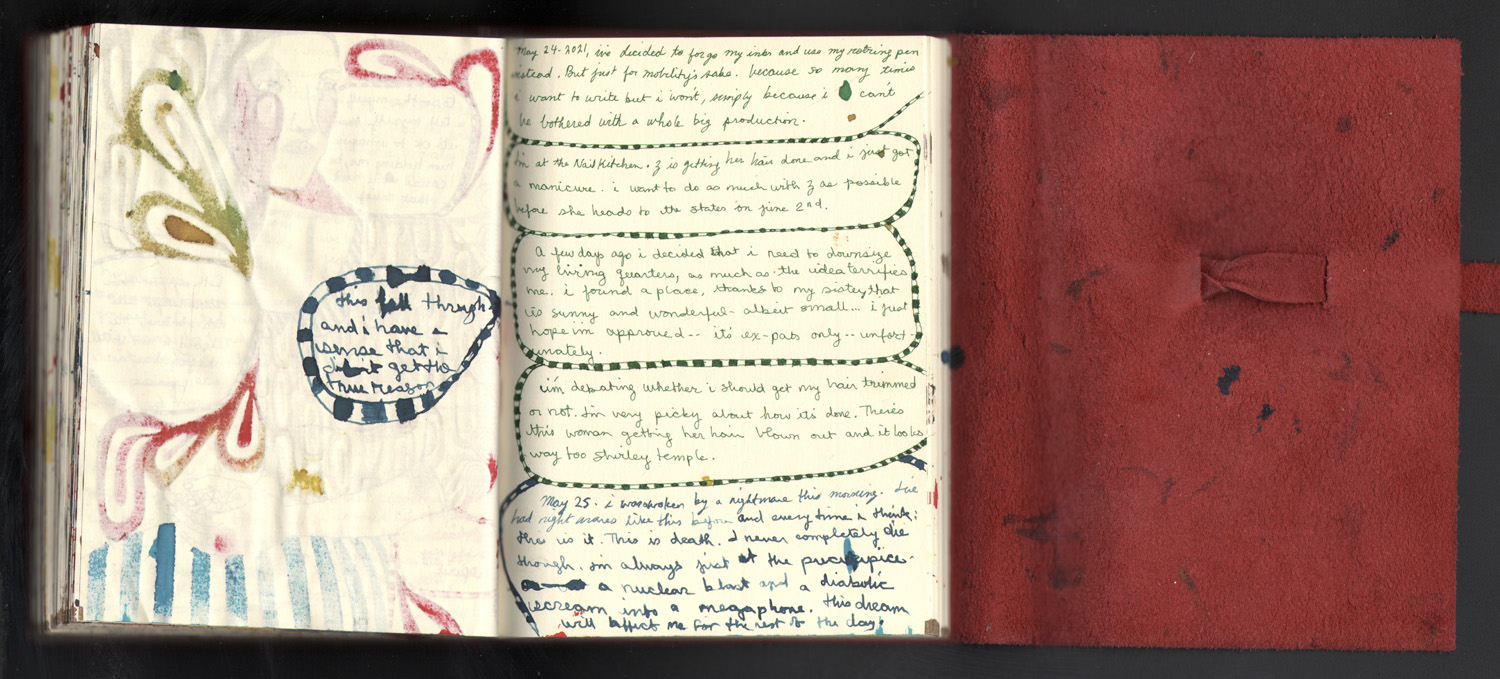 this fall through
and i have a
sense that i
didn't get the
true reason
May 24-2021, ive decided to forgo my inks and use my rotring pen
instead. But just for mobility's sake. because so many times
i want to write but i won't, simply because i can't
be bothered with a whole big production.
I'm at the Nail Kitchen. Z is getting her hair done and i just got
a manicure. i want to do as much with Z as possible
before she heads to the states on june 2nd.
A few days ago i decided that i need to downsize
my living quarters, as much as the idea terrifies
me. i found a place, thanks to my sister, that
is sunny and wonderful- albeit small... i just
hope i'm approved-- it's ex-pats only-- unfort-
unately.
i'm debating whether i should get my hair trimmed
or not. I'm very picky about how its done. There's
this woman getting her hair blown out and it looks
way too shirley temple.
May 25. i was awoken by a nightmare this morning. I've
had nightmares like this before and every time i think:
this is it. This is death. I never completely die
though. i'm always just at the precipice-
a nuclear blast and a diabolic
scream into a megaphone. this dream
will affect me for the rest of the day!